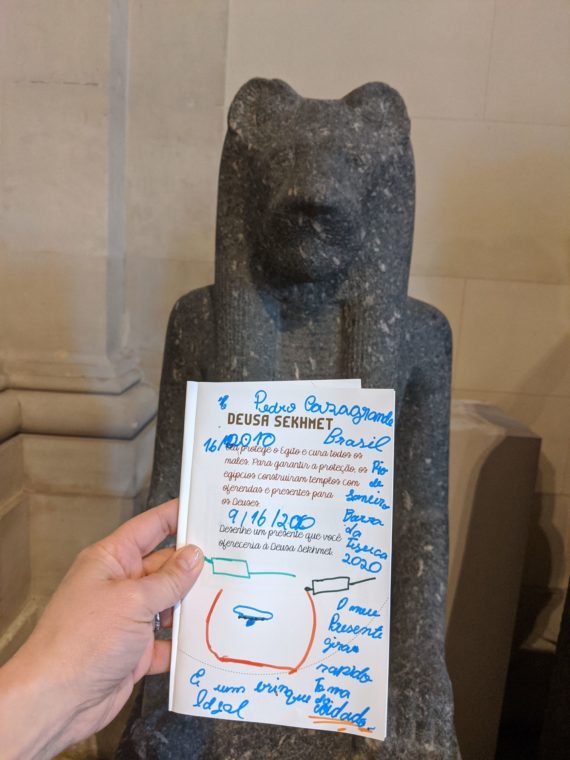 Pedro Cavagrande
DEUSA SEKHMET
Brasil
protege o Egito e cura todos os
males. Para garantir a proteção, os
egípcios construíram templos com
oferendas e presentes para
os Deuses.
9/16/200
Desenhe um presente que você
ofereceria à Deusa Sekhmet:
Rio
de
Janeiro
Barra
da
Tijuca
2020
O meu
Presente
gira
rapido
Toma
cuidado
É um brinquedo
Ideal